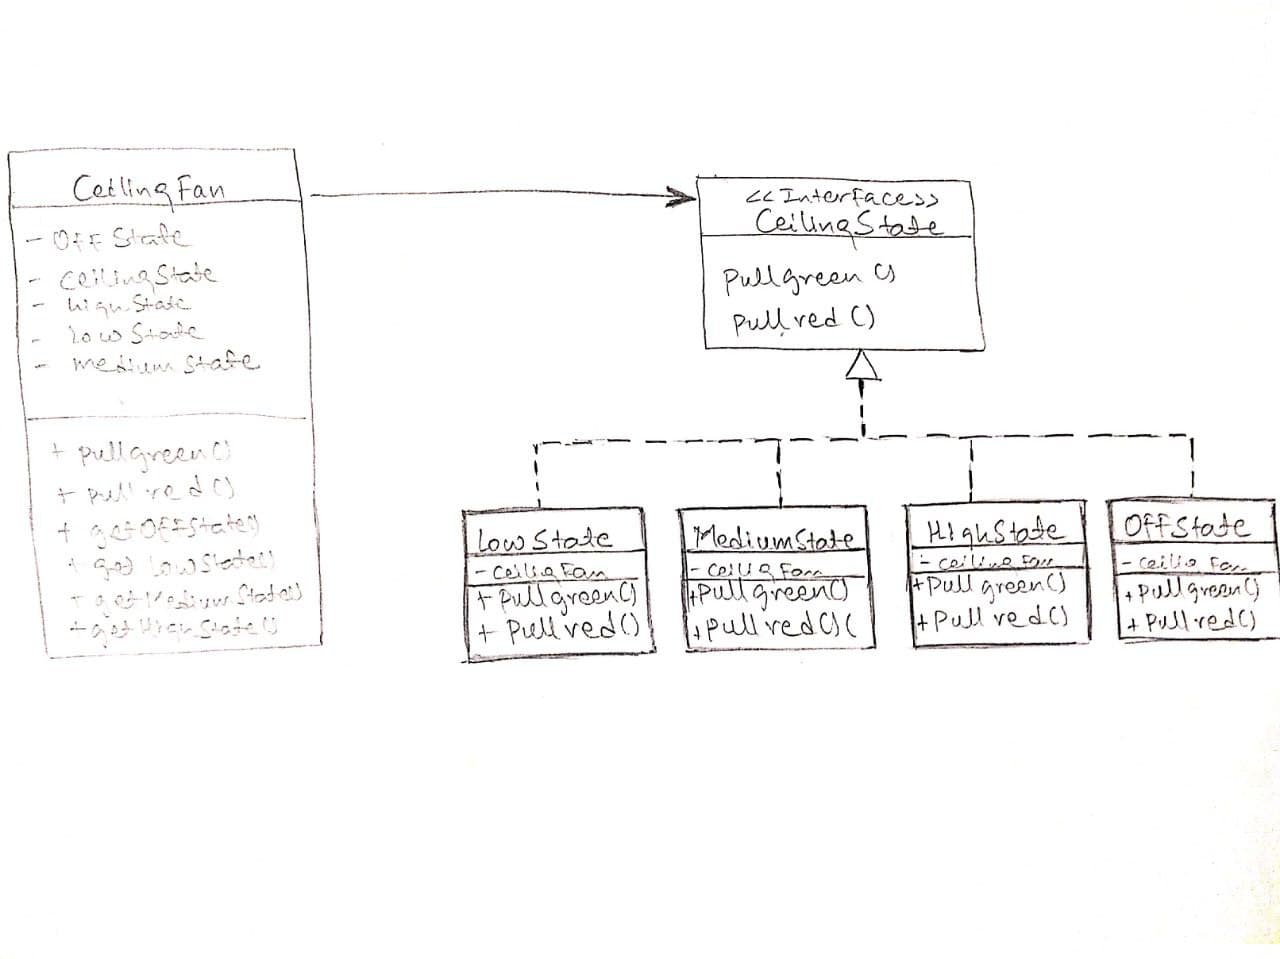 CeilingFan
- OffState
- ceilingState
- highState
- lowState
- mediumState
+ pullgreen()
+ pullred()
+ getOffState()
+ getLowState()
+ getMediumState()
+ getHighState()
<<Interface>>
CeilingState
pullgreen()
pullred()
LowState
- CeiligFan
+ Pullgreen()
+ Pullred()
MediumState
- ceiligFan
+Pullgreen()
+Pullred()(
HighState
- ceilingFan
+Pullgreen()
+Pullred()
OffState
- ceilig Fan
+Pullgreen()
+Pullred()